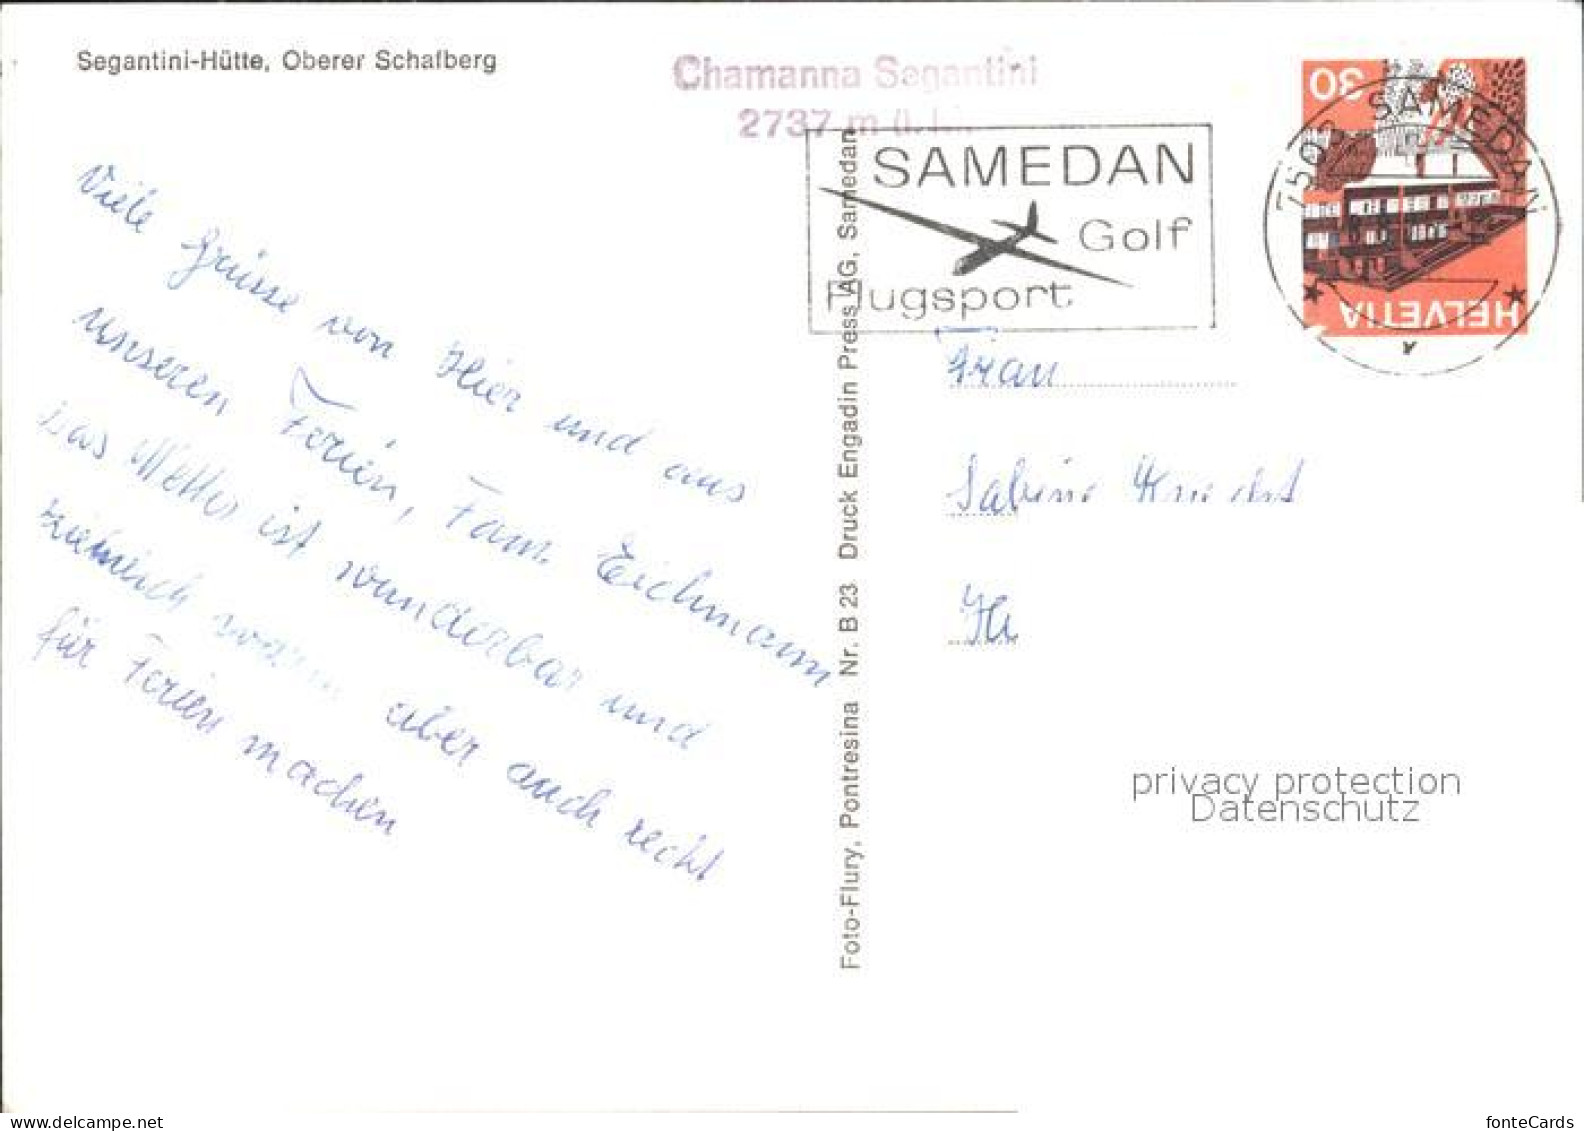 Segantini-Hütte, Oberer Schafberg
Chamanna Segantini
2737 m ü. M.
SAMEDAN
Golf
Flugsport
7503 SAMEDAN
30
HELVETIA
Viele Grüsse von Hier und aus
unseren Ferien, Fam. Eichmann
Das Wetter ist wunderbar und
ziemlich warm aber auch recht
für Ferien machen
Foto-Flury, Pontresina Nr. B 23 Druck Engadin Press AG, Samedan
Frau
Sabine
privacy protection
Datenschutz
www.delcampe.net
fonteCards